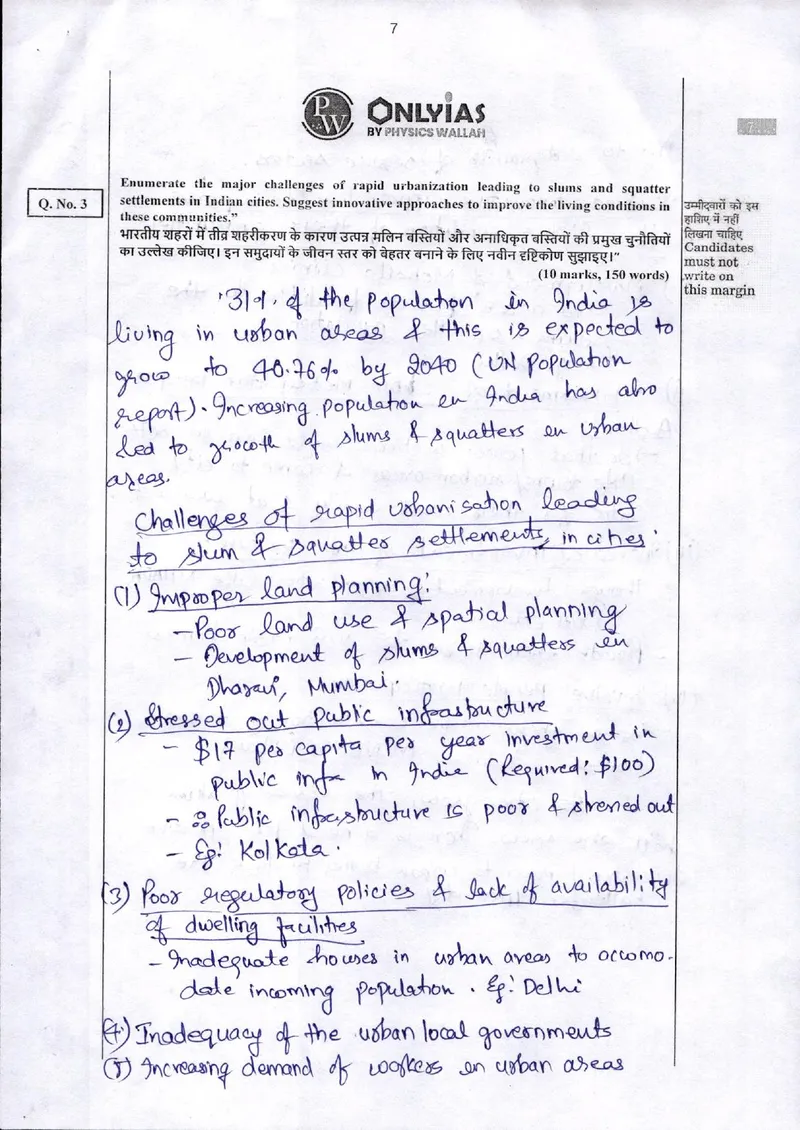 7
PW
ONLYIAS
BY PHYSICS WALLAH
7
Q. No. 3
Enumerate the major challenges of rapid urbanization leading to slums and squatter
settlements in Indian cities. Suggest innovative approaches to improve the living conditions in
these communities.”
भारतीय शहरों में तीव्र शहरीकरण के कारण उत्पन्न मलिन बस्तियों और अनाधिकृत बस्तियों की प्रमुख चुनौतियों
का उल्लेख कीजिए। इन समुदायों के जीवन स्तर को बेहतर बनाने के लिए नवीन दृष्टिकोण सुझाइए।”
(10 marks, 150 words)
उम्मीदवारों को इस
हाशिए में नहीं
लिखना चाहिए
Candidates
must not
write on
this margin
31% of the population in India is
living in urban areas & this is expected to
grow to 40.76% by 2040 (UN Population
report). Increasing population in India has also
led to growth of slums & squatters in urban
areas.
Challenges of rapid urbanisation leading
to slum & squatter settlements in cities:
(1) Improper land planning:
- Poor land use & spatial planning
- Development of slums & squatters in
Dharavi, Mumbai.
(2) Stressed out public infrastructure
- $17 per capita per year investment in
public infra in India (Required: $100)
- ∴ Public infrastructure is poor & stressed out
- Eg: Kolkata.
(3) Poor regulatory policies & lack of availability
of dwelling facilities
- Inadequate houses in urban areas to accomo-
date incoming population. Eg: Delhi
(4) Inadequacy of the urban local governments
(5) Increasing demand of workers in urban areas